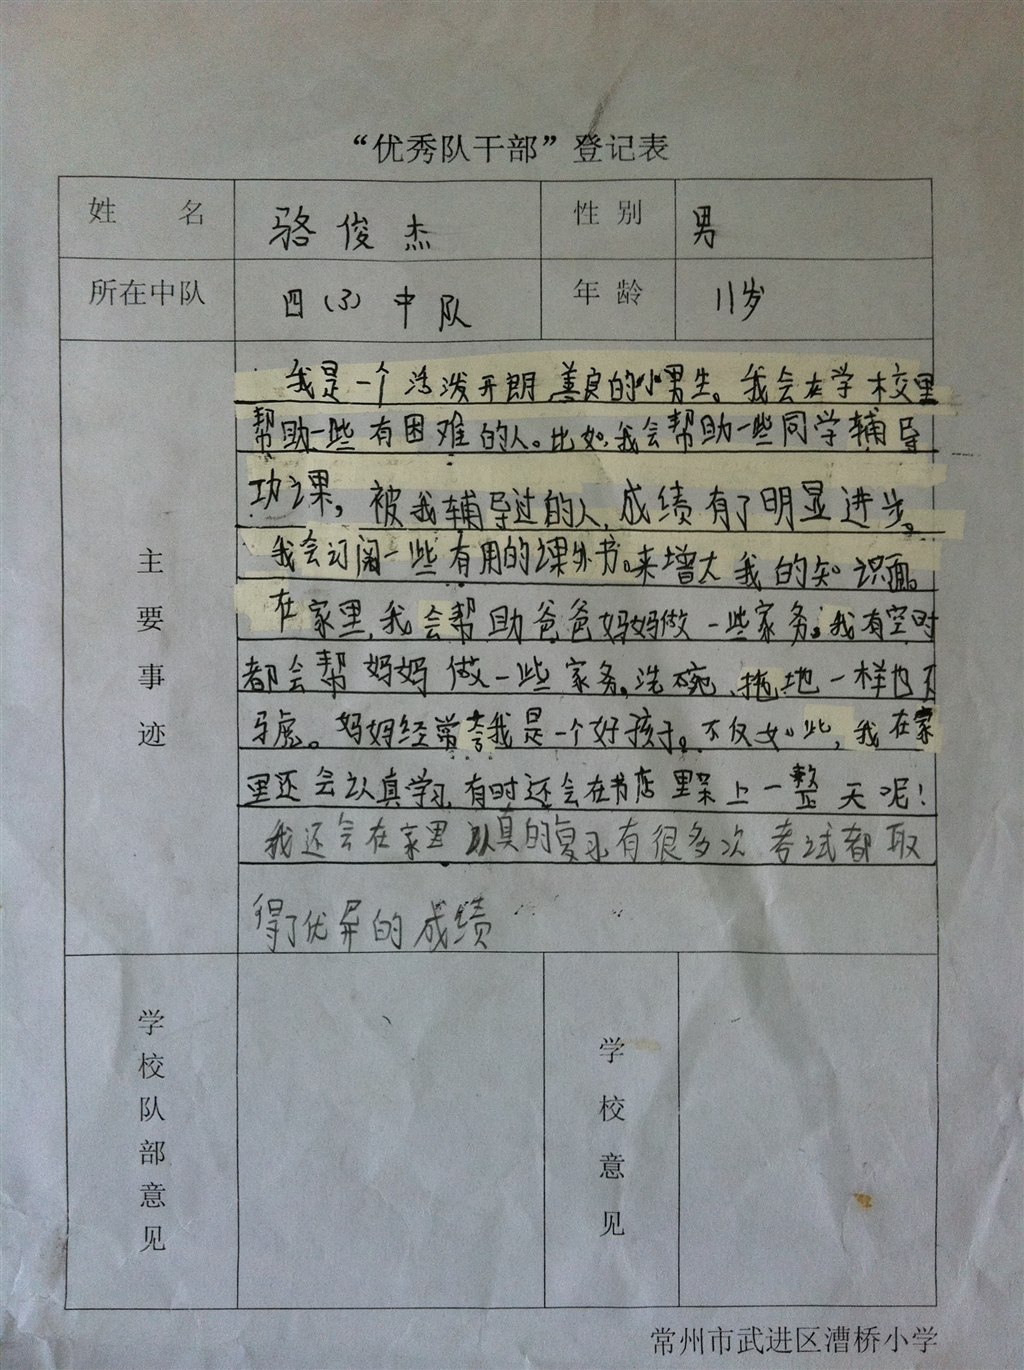 “优秀队干部”登记表
姓 名 骆俊杰 性 别 男
所在中队 四（3）中队 年 龄 11岁
主要事迹
我是一个活泼开朗,善良的小男生。我会在学校里
帮助一些有困难的人。比如,我会帮助一些同学辅导
功课，被我辅导过的人,成绩有了明显进步。
我会订阅一些有用的课外书。来增大我的知识面。
在家里,我会帮助爸爸妈妈做一些家务。我有空时
都会帮妈妈做一些家务。洗碗,拖地一样也不
马虎。妈妈经常夸我是一个好孩子。不仅如此,我在家
里还会认真学习,有时还会在书店里呆上一整天呢！
我还会在家里认真的复习有很多次考试都取
得了优异的成绩
学校队部意见
学校意见
常州市武进区漕桥小学